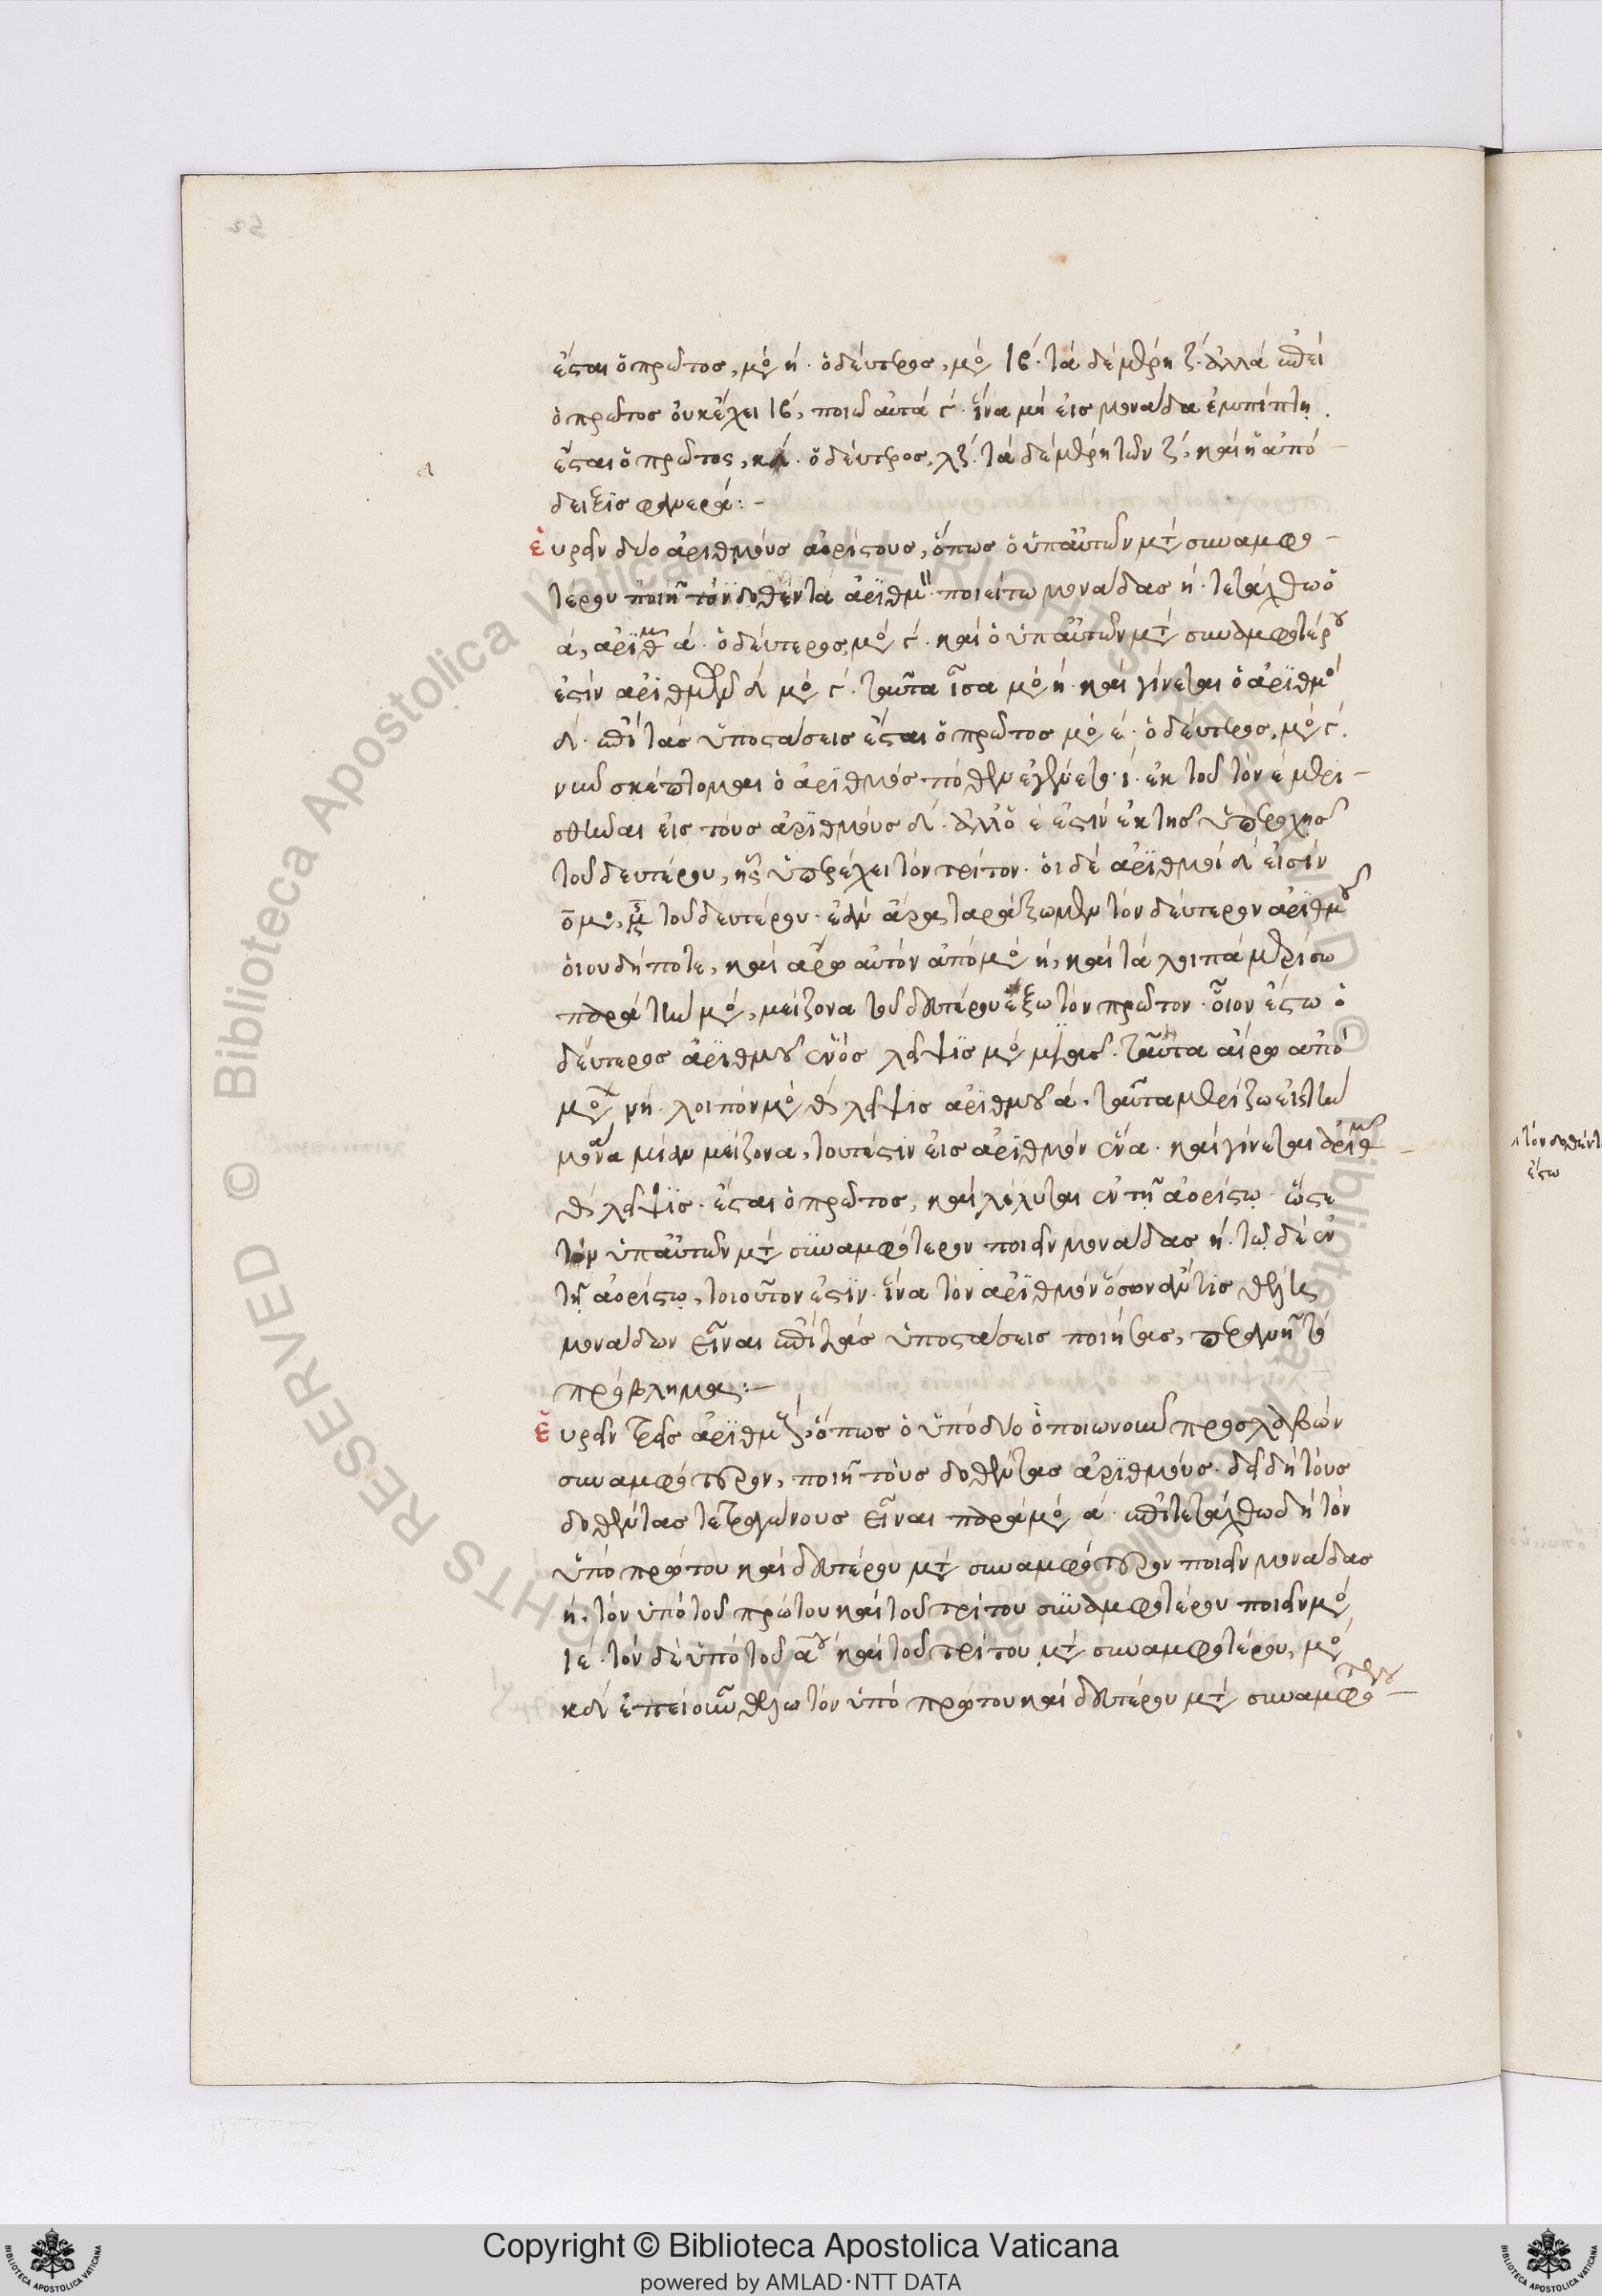 ἔσται ὁ πρῶτος, μο ή. ὁ δεύτερος, μο ιβ. τὰ δὲ μέρη ζ. ἀλλὰ ἐπεὶ
ὁ πρῶτος οὐκ ἔχει ιβ, ποιῶ αὐτὰ ϛ. ἵνα μὴ εἰς μονάδα ἐμπίπτῃ.
ἔσται ὁ πρῶτος, κδ. ὁ δεύτερος, λϛ. τὰ δὲ μέρη τῶν ζ, καὶ ἡ ἀπό
δειξις φανερά:-
Εὑρεῖν δύο ἀριθμοὺς ἀορίστους, ὅπως ὁ ὑπ αὐτῶν μτ συναμφο-
τέρου ποιῇ τὸν δοθέντα ἀριθμ. ποιείτω μονάδας ή. τετάχθω ὁ
ά, ἀριθμ ά. ὁ δεύτερος, μο γ. καὶ ὁ ὑπ αὐτῶν μτ συναμφοτέρου
ἐστιν ἀριθμῶν δ μο γ. ταῦτα ἴσα μο ή. καὶ γίνεται ὁ ἀριθμο
ἐπὶ τὰς ὑποστάσεις ἔσται ὁ πρῶτος μο έ. ὁ δεύτερος, μο γ.
νῦν σκέπτομαι ὁ ἀριθμὸς πόθεν ἐγένετο. ἐκ τοῦ τὸν έ μερι-
σθῆναι εἰς τοὺς ἀριθμοὺς δ. ἀλλ ὁ έ ἐστιν ἐκ τῆς ὑπεροχῆς
τοῦ δευτέρου, ἧς ὑπερέχει τὸν τρίτον. οἱ δὲ ἀριθμοὶ δ εἰσὶν
τοῦ δευτέρου. ἐὰν ἄρα ταράξωμεν τὸν δεύτερον ἀριθμοῦ
οἱουδήποτε, καὶ ἄρω αὐτὸν ἀπὸ μο ή, καὶ τὰ λοιπὰ μερίσω
παρὰ τὴν μο, μείζονα τοῦ δευτέρου ἕξω τὸν πρῶτον. οἷον ἔστω ὁ
δεύτερος ἀριθμοῦ ἑνὸς λεῖψις μο μιᾶς. ταῦτα αἴρω ἀπὸ
μο ή. λοιπὸν μο θ λεῖψις ἀριθμοῦ ά. ταῦτα μερίζω εἰς τὴν
μονα μίαν μείζονα, τουτέστιν εἰς ἀριθμὸν ἕνα. καὶ γίνεται ἀριθμ
θ λεῖψις. ἔσται ὁ πρῶτος, καὶ λέλυται ἐν τῇ ἀορίστῳ. ὥστε
τὸν ὑπ αὐτῶν μτ συναμφότερον ποιεῖν μονάδας ή. τῶ δὲ ἐν
τῇ ἀορίστῳ, τοιοῦτον ἐστιν. ἵνα τὸν ἀριθμὸν ὅσων ἄν τις θέλῃ
μονάδων εἶναι ἐπὶ τὰς ὑποστάσεις ποιήσας, περανῇ τὸ
πρόβλημα:-
Εὑρεῖν τρεῖς ἀριθμοὺς, ὅπως ὁ ὑπὸ δύο ὁποιωνοῦν προσλαβὼν
συναμφότερον, ποιῇ τοὺς δοθέντας ἀριθμούς. δεῖ δὴ τοὺς
δοθέντας τετραγώνους εἶναι παρὰ μο ά. ἐπιτετάχθω δὴ τὸν
ὑπὸ πρώτου καὶ δευτέρου μτ συναμφότερον ποιεῖν μονάδας
ή. τὸν ὑπὸ τοῦ πρώτου καὶ τοῦ τρίτου συναμφοτέρου ποιεῖν μο
ιέ. τὸν δὲ ὑπὸ τοῦ α καὶ τοῦ τρίτου μτ συναμφοτέρου, μο
κδ ἐπεὶ οὖν θέλω τὸν ὑπὸ πρώτου καὶ δευτέρου μτ συναμφο-
Copyright © Biblioteca Apostolica Vaticana
powered by AMLAD·NTT DATA